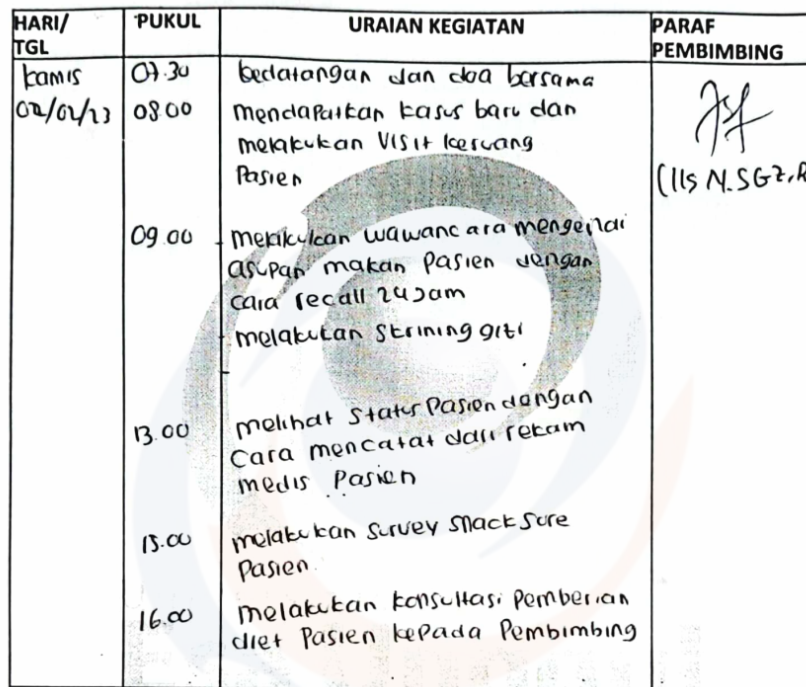 HARI/ TGL PUKUL URAIAN KEGIATAN PARAF PEMBIMBING
Kamis 07.30 kedatangan dan doa bersama
02/02/23 08.00 mendapatkan kasus baru dan
melakukan visit keruang
Pasien
(Iis N.SGz,R
09.00 - melakukan wawancara mengenai
asupan makan Pasien dengan
cara recall 24 Jam
- melakukan skrining gizi
-
13.00 melihat status Pasien dengan
cara mencatat dari rekam
medis Pasien
15.00 melakukan survey snack sore
Pasien
16.00 melakukan konsultasi Pemberian
diet Pasien kepada Pembimbing